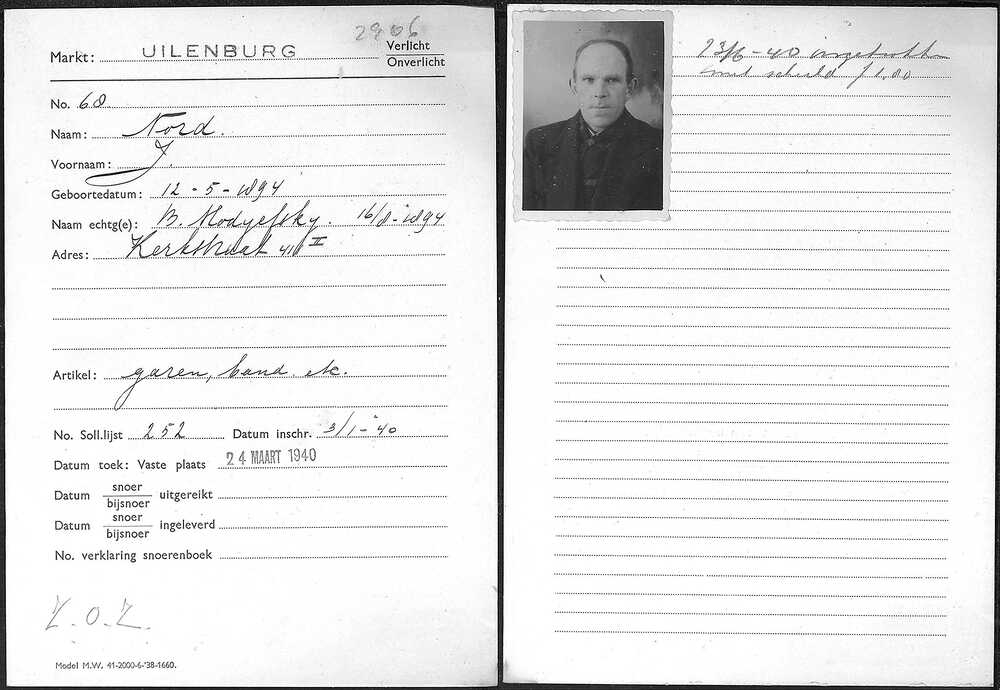 2906
Markt: UILENBURG Verlicht
Onverlicht
No. 68
Naam: Nord.
Voornaam: J.
Geboortedatum: 12-5-1894
Naam echtg(e): B. Modyefsky. 16/8-1894
Adres: Kerkstraat 411 II
Artikel: garen, band etc.
No. Soll.lijst 252 Datum inschr. 3/1-40
Datum toek: Vaste plaats 24 MAART 1940
Datum snoer
bijsnoer uitgereikt
Datum snoer
bijsnoer ingeleverd
No. verklaring snoerenboek
Z.O.Z.
Model M.W. 41-2000-6-'38-1660.
23/6-40 ingetrokken
met schuld f 1.00